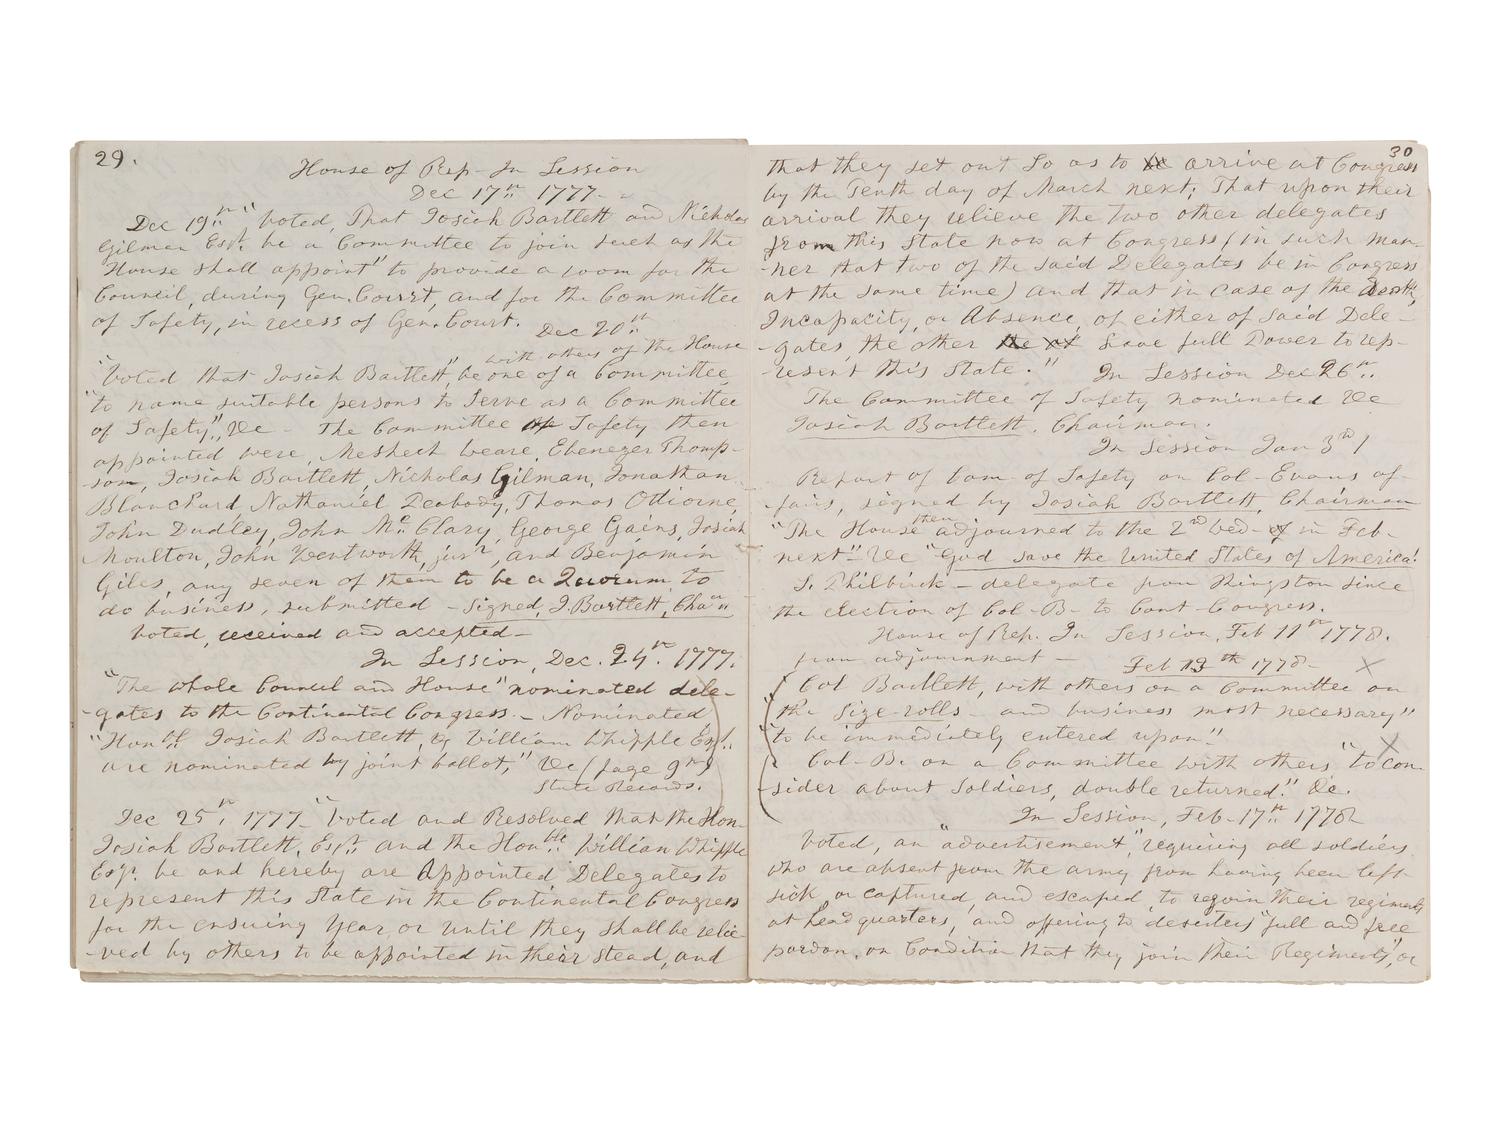 29.
House of Rep- In Session
Dec 17th 1777-
Dec 19th "Voted, That Josiah Bartlett and Nicholas
Gilman Esqr. be a Committee to join such as the
House shall appoint" to provide a room for the
Council, during Gen. Court, and for the Committee
of Safety, in recess of Gen. Court.
Dec 20th
with others of the House
"Voted that Josiah Bartlett", be one of a Committee
"to name suitable persons to Serve as a Committee
of Safety", &c - The Committee of Safety then
appointed were, Meshech Weare, Ebenezer Thomp-
-son, Josiah Bartlett, Nicholas Gilman, Jonathan
Blanchard, Nathaniel Peabody, Thomas Odiorne,
John Dudley, John McClary, George Gains, Josiah
Moulton, John Wentworth, junr, and Benjamin
Giles, any seven of them to be a Quorum to
do business, submitted - Signed, J. Bartlett, Chan
Voted, received and accepted-
In Session, Dec. 24th. 1777.
"The whole Council and House" nominated dele-
-gates to the Continental Congress. - Nominated
"Honble Josiah Bartlett, & William Whipple Esqr.
are nominated by joint ballot," &c (page 9th
State Records.
Dec 25th, 1777- "Voted and Resolved that the Hon.
Josiah Bartlett, Esqr. and the Honble William Whipple
Esqr. be and hereby are Appointed Delegates to
represent this State in the Continental Congress
for the ensuing Year, or until they shall be relie-
-ved by others to be appointed in their stead, and
30
that they set out So as to be arrive at Congress
by the Tenth day of March next; That upon their
arrival they relieve the two other delegates
from this State now at Congress (in such man-
-ner that two of the said Delegates be in Congress
at the same time) and that in case of the Death,
Incapacity, or Absence, of either of said Dele-
-gates, the other have full Power to rep-
-resent this State." In Session Dec 26th.
The Committee of Safety nominated &c
Josiah Bartlett, Chairman.
In Session Jan 3rd
Report of Com of Safety on Col- Evans af-
-fairs, signed by Josiah Bartlett, Chairman
then
"The House adjourned to the 2nd Wed- of in Feb-
next" &c "God save the United States of America"
S. Philbrick - delegate from Kingston since
the election of Col- B- to Cont- Congress.
House of Rep. In Session, Feb 11th 1778.
from adjournment - Feb 13 th 1778- X
Col Bartlett, with others on a Committee on
"the Size-rolls - and business most necessary"
"to be immediately entered upon" X
Col- B. on a Committee with others "to con-
-sider about Soldiers, double returned" &c.
In Session, Feb- 17th 1778
Voted, an "advertisement", requiring all soldiers
who are absent from the army from having been left
sick, or captured, and escaped, to rejoin their regiments
at head quarters, and offering to deserters "full and free
pardon, on Condition that they join their Regiments", or